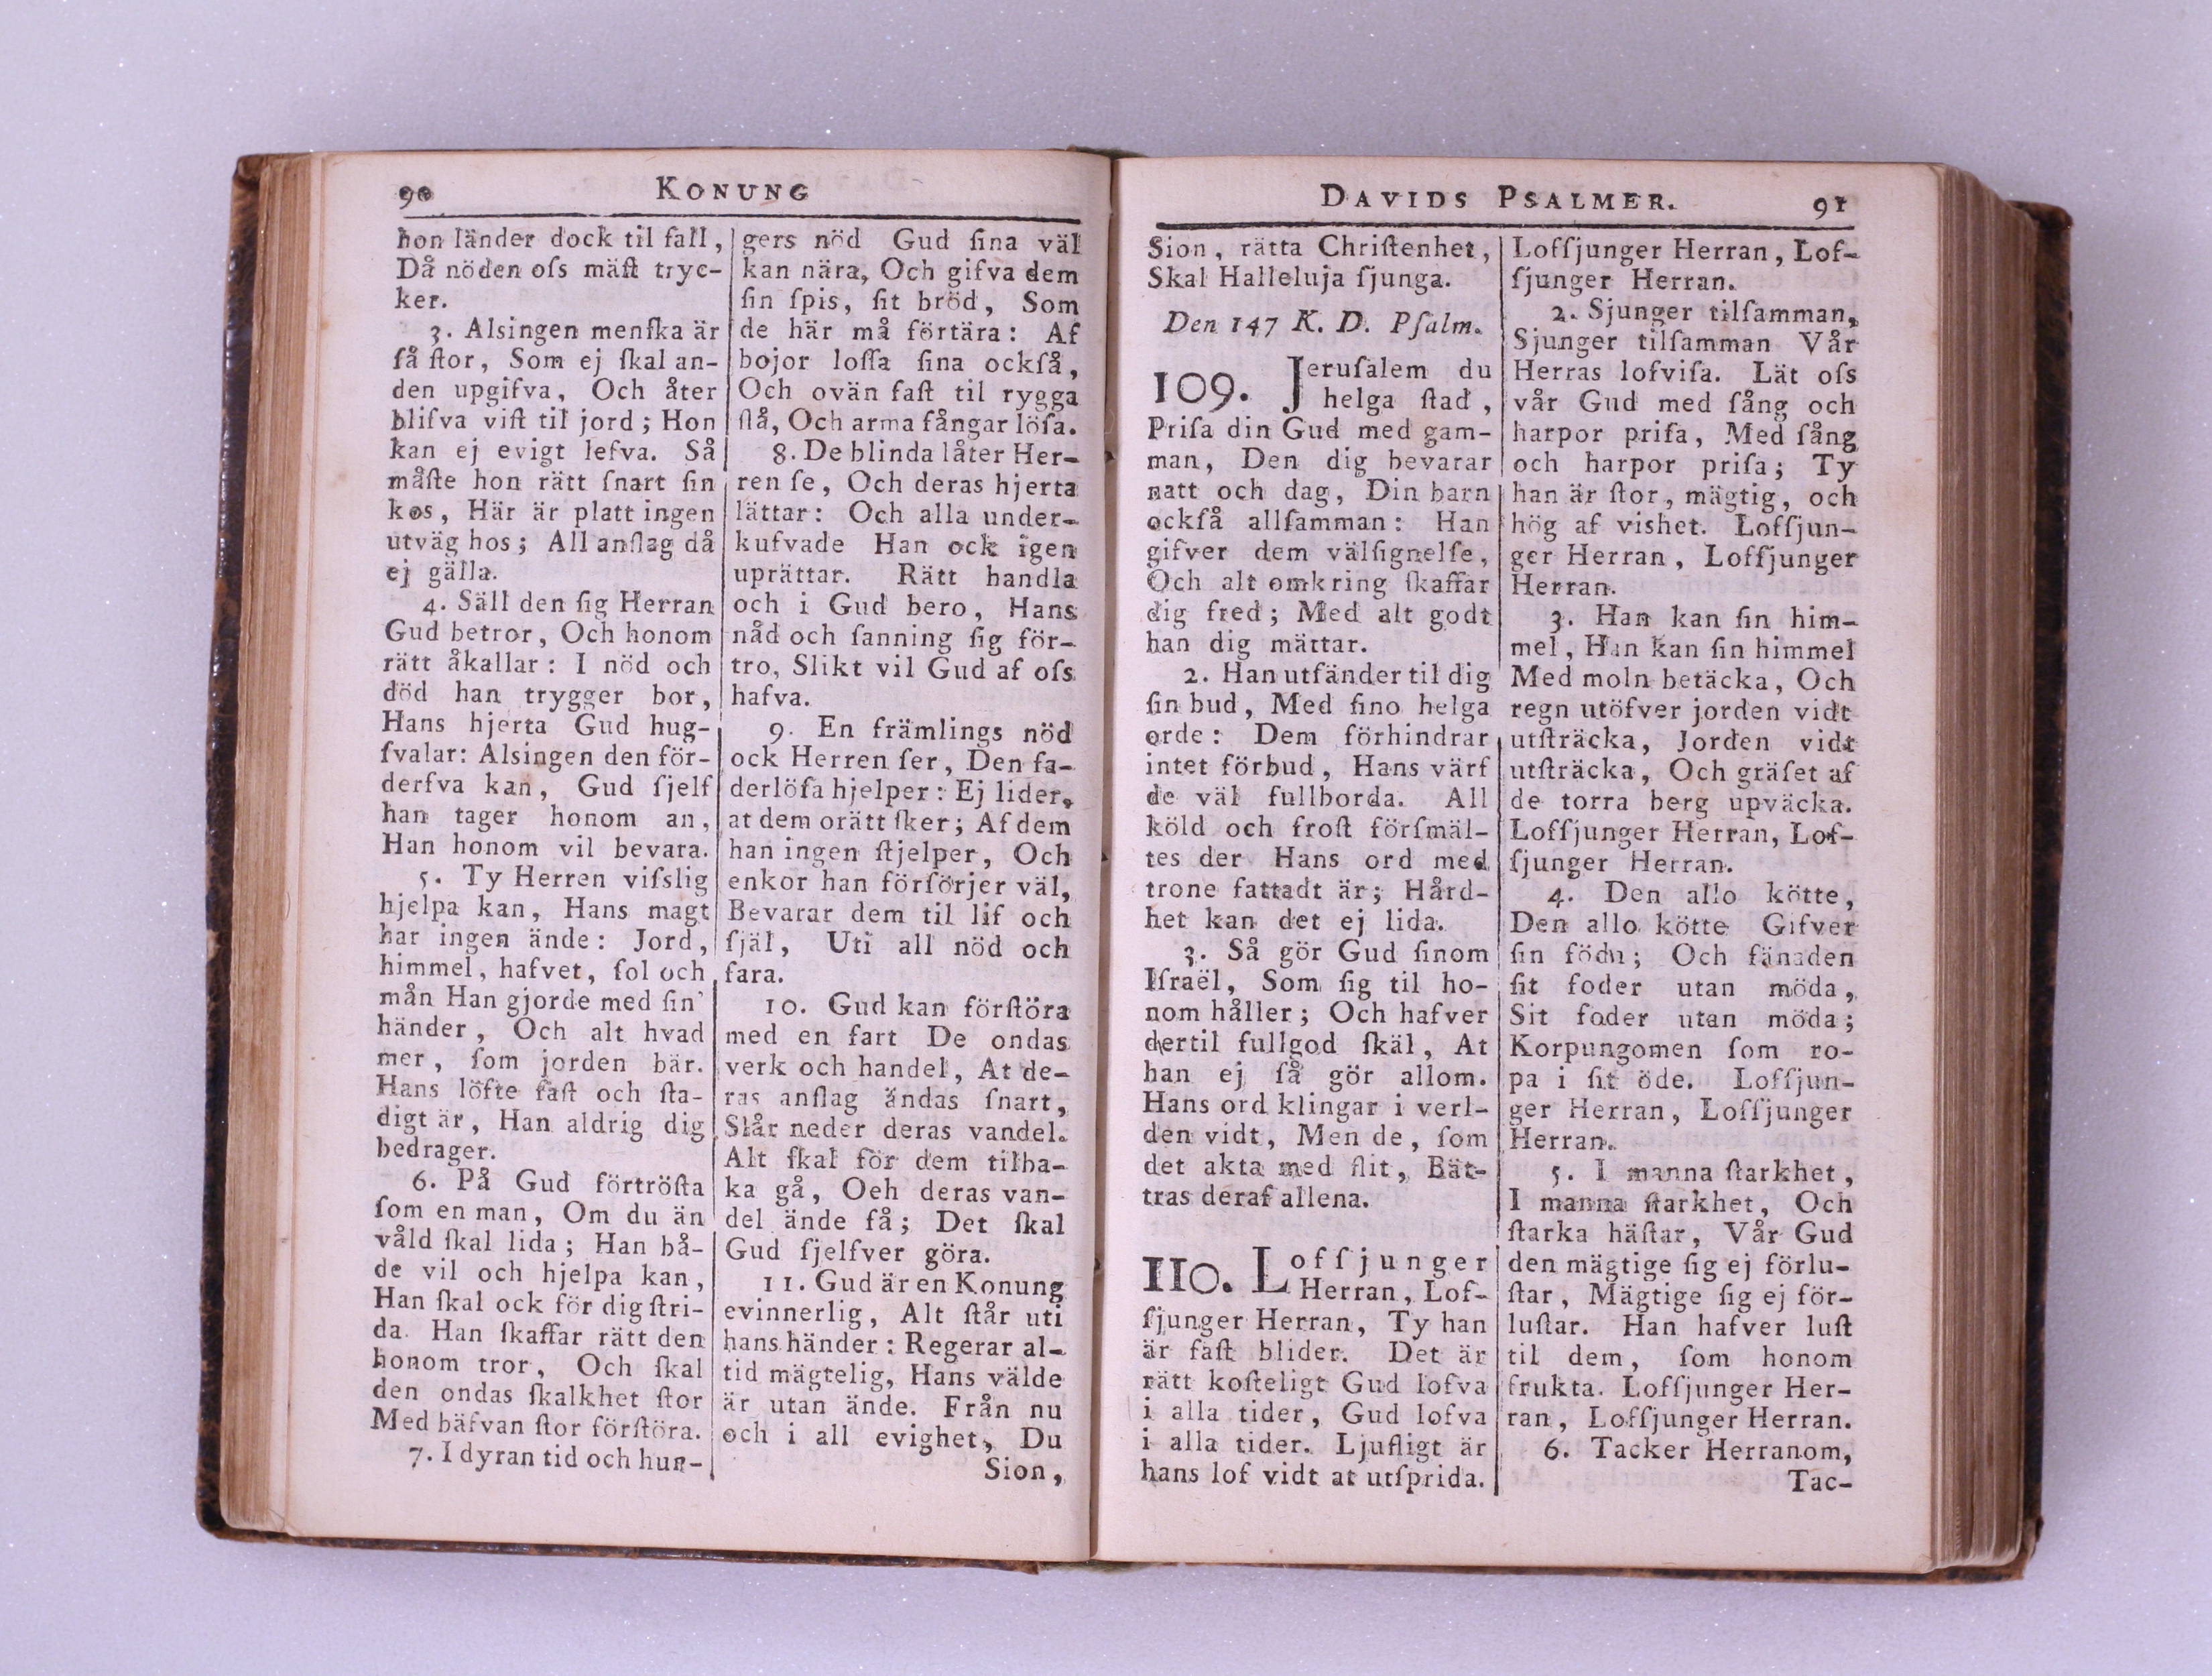 90 KONUNG
hon länder dock til fall,
Då nöden oſs mäſt tryc-
ker.
3. Alsingen menſka är
få ſtor, Som ej ſkal an-
den upgifva, Och åter
blifva viſt til jord; Hon
kan ej evigt lefva. Så
måſte hon rätt ſnart ſin
kos, Här är platt ingen
utväg hos; All anſlag då
ej gälla.
4. Säll den ſig Herran
Gud betror, Och honom
rätt åkallar: I nöd och
död han trygger bor,
Hans hjerta Gud hug-
ſvalar: Alsingen den för-
derfva kan, Gud ſjelf
han tager honom an,
Han honom vil bevara.
5. Ty Herren viſslig
hjelpa kan, Hans magt
har ingen ände: Jord,
himmel, hafvet, ſol och
mån Han gjorde med ſin'
händer, Och alt hvad
mer, ſom jorden bär.
Hans löfte faſt och ſta-
digt är, Han aldrig dig
bedrager.
6. På Gud förtröſta
ſom en man, Om du än
våld ſkal lida; Han bå-
de vil och hjelpa kan,
Han ſkal ock för dig ſtri-
da. Han ſkaffar rätt den
honom tror, Och ſkal
den ondas ſkalkhet ſtor
Med bäfvan ſtor förſtöra.
7. I dyran tid och hun-
gers nöd Gud ſina väl
kan nära, Och gifva dem
ſin ſpis, ſit bröd, Som
de här må förtära: Af
bojor loſſa ſina ockſå,
Och ovän faſt til rygga
ſlå, Och arma fångar löſa.
8. De blinda låter Her-
ren ſe, Och deras hjerta
lättar: Och alla under-
kufvade Han ock igen
uprättar. Rätt handla
och i Gud bero, Hans
nåd och ſanning ſig för-
tro, Slikt vil Gud af oſs
hafva.
9. En främlings nöd
ock Herren ſer, Den fa-
derlöſa hjelper: Ej lider,
at dem orätt ſker; Af dem
han ingen ſtjelper, Och
enkor han förſörjer väl,
Bevarar dem til lif och
ſjäl, Uti all nöd och
fara.
10. Gud kan förſtöra
med en fart De ondas
verk och handel, At de-
ras anſlag ändas ſnart,
Slår neder deras vandel.
Alt ſkal för dem tilba-
ka gå, Oeh deras van-
del ände få; Det ſkal
Gud ſjelfver göra.
11. Gud är en Konung
evinnerlig, Alt ſtår uti
hans händer: Regerar al-
tid mägtelig, Hans välde
är utan ände. Från nu
och i all evighet, Du
Sion,
DAVIDS PSALMER. 91
Sion, rätta Chriſtenhet,
Skal Halleluja ſjunga.
Den 147 K. D. Pſalm.
109. Jeruſalem du
helga ſtad,
Priſa din Gud med gam-
man, Den dig bevarar
natt och dag, Din barn
ockſå allſamman: Han
gifver dem välſignelſe,
Och alt omkring ſkaffar
dig fred; Med alt godt
han dig mättar.
2. Han utſänder til dig
ſin bud, Med ſino helga
orde: Dem förhindrar
intet förbud, Hans värf
de väl fullborda. All
köld och froſt förſmäl-
tes der Hans ord med
trone fattadt är; Hård-
het kan det ej lida.
3. Så gör Gud ſinom
Iſraël, Som ſig til ho-
nom håller; Och hafver
dertil fullgod ſkäl, At
han ej ſå gör allom.
Hans ord klingar i verl-
den vidt, Men de, ſom
det akta med flit, Bät-
tras deraf allena.
110. Lofſjunger
Herran, Lof-
ſjunger Herran, Ty han
är faſt blider. Det är
rätt koſteligt Gud lofva
i alla tider, Gud lofva
i alla tider. Ljufligt är
hans lof vidt at utſprida.
Lofſjunger Herran, Lof-
ſjunger Herran.
2. Sjunger tilſamman,
Sjunger tilſamman Vår
Herras lofviſa. Lät oſs
vår Gud med ſång och
harpor priſa, Med ſång
och harpor priſa; Ty
han är ſtor, mägtig, och
hög af vishet. Lofſjun-
ger Herran, Lofſjunger
Herran.
3. Han kan ſin him-
mel, Han kan ſin himmel
Med moln betäcka, Och
regn utöfver jorden vidt
utſträcka, Jorden vidt
utſträcka, Och gräſet af
de torra berg upväcka.
Lofſjunger Herran, Lof-
ſjunger Herran.
4. Den allo kötte,
Den allo kötte Gifver
ſin födu; Och fänaden
ſit foder utan möda,
Sit foder utan möda;
Korpungomen ſom ro-
pa i ſit öde. Lofſjun-
ger Herran, Lofſjunger
Herran.
5. I manna ſtarkhet,
I manna ſtarkhet, Och
ſtarka häſtar, Vår Gud
den mägtige ſig ej förlu-
ſtar, Mägtige ſig ej för-
luſtar. Han hafver luſt
til dem, ſom honom
frukta. Lofſjunger Her-
ran, Lofſjunger Herran.
6. Tacker Herranom,
Tac-